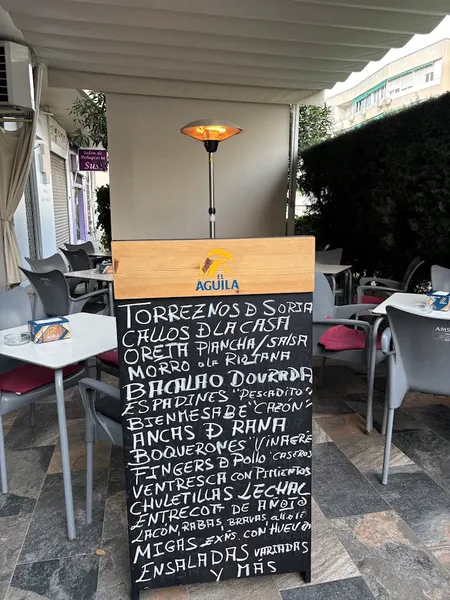 Salon de
Peluquería
Sus
EL
AGUILA
TORREZNOS D SORIA
CALLOS D LA CASA
OREJA PLANCHA/SALSA
MORRO a la RIOJANA
BACALAO DOURADA
ESPADINES "PESCADITO"
BIENMESABE "CAZÓN"
ANCAS D RANA
BOQUERONES "VINAGRE
FINGERS D POLLO CASEROS
VENTRESCA CON PIMIENTOS
CHULETILLAS LECHAL
ENTRECOTT DE AÑOJO
LACÓN, RABAS, BRAVAS, alioli
MIGAS EXÑS. CON HUEVO
ENSALADAS VARIADAS
Y MÁS